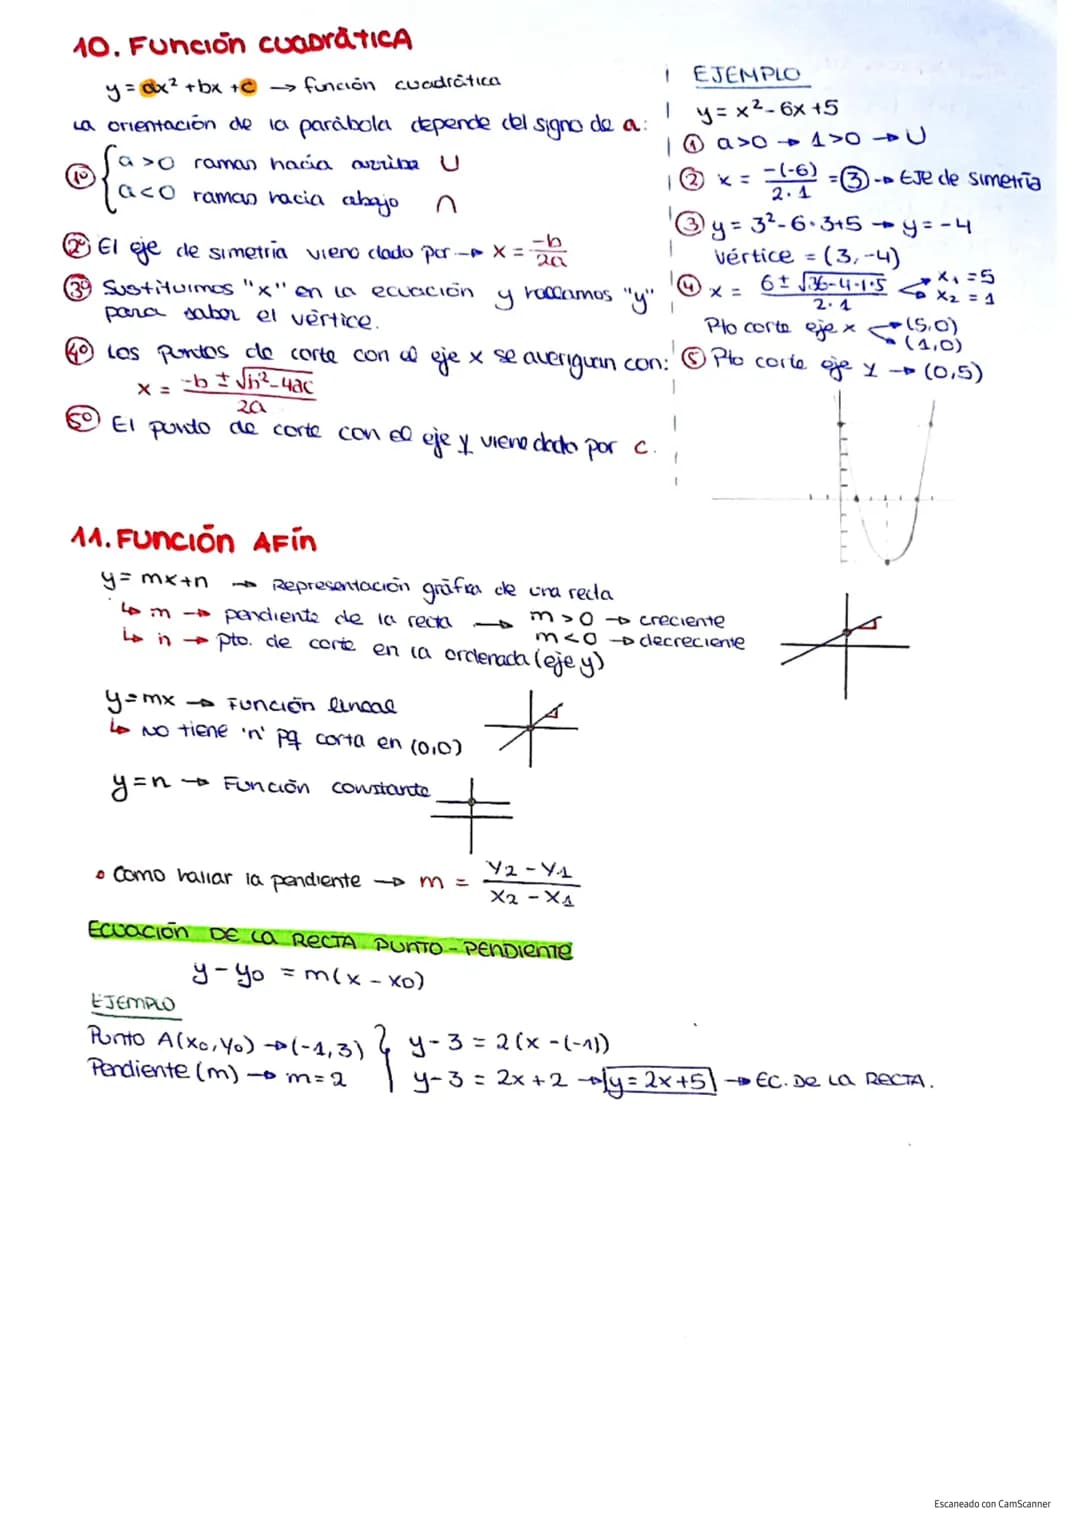 10. Función cuadrática
y = ax² + bx + c → función cuadrática
La orientación de la parábola depende del signo de a:
1º a > 0 ramas hacia arriba ∪
a < 0 ramas hacia abajo ∩
2º El eje de simetría viene dado por → x = -b/2a
3º Sustituimos "x" en la ecuación y hallamos "y"
para saber el vértice.
4º Los puntos de corte con el eje x se averiguan con:
x = (-b ± √(b²-4ac))/2a
5º El punto de corte con el eje y viene dado por c.
EJEMPLO
y = x² - 6x + 5
① a > 0 → 1 > 0 → ∪
② x = -(-6)/2·1 = 3 → Eje de simetría
③ y = 3² - 6·3+5 → y = -4
Vértice = (3, -4)
④ x = (6 ± √(36-4·1·5))/2·1 → x₁ = 5
→ x₂ = 1
Pto corte eje x → (5,0)
→ (1,0)
⑤ Pto corte eje y → (0,5)
11. Función Afín
y = mx + n → Representación gráfica de una recta
↳ m → pendiente de la recta → m > 0 → creciente
m < 0 → decreciente
↳ n → pto. de corte en la ordenada (eje y)
y = mx → Función lineal
↳ No tiene 'n' pq corta en (0,0)
y = n → Función constante
• Como hallar la pendiente → m = (y₂ - y₁)/(x₂ - x₁)
Ecuación de la recta punto-pendiente
y - y₀ = m(x - x₀)
EJEMPLO
Punto A(x₀, y₀) → (-1, 3) } y - 3 = 2(x - (-1))
Pendiente (m) → m = 2 y - 3 = 2x + 2 → y = 2x + 5 → EC. De la RECTA.
Escaneado con CamScanner